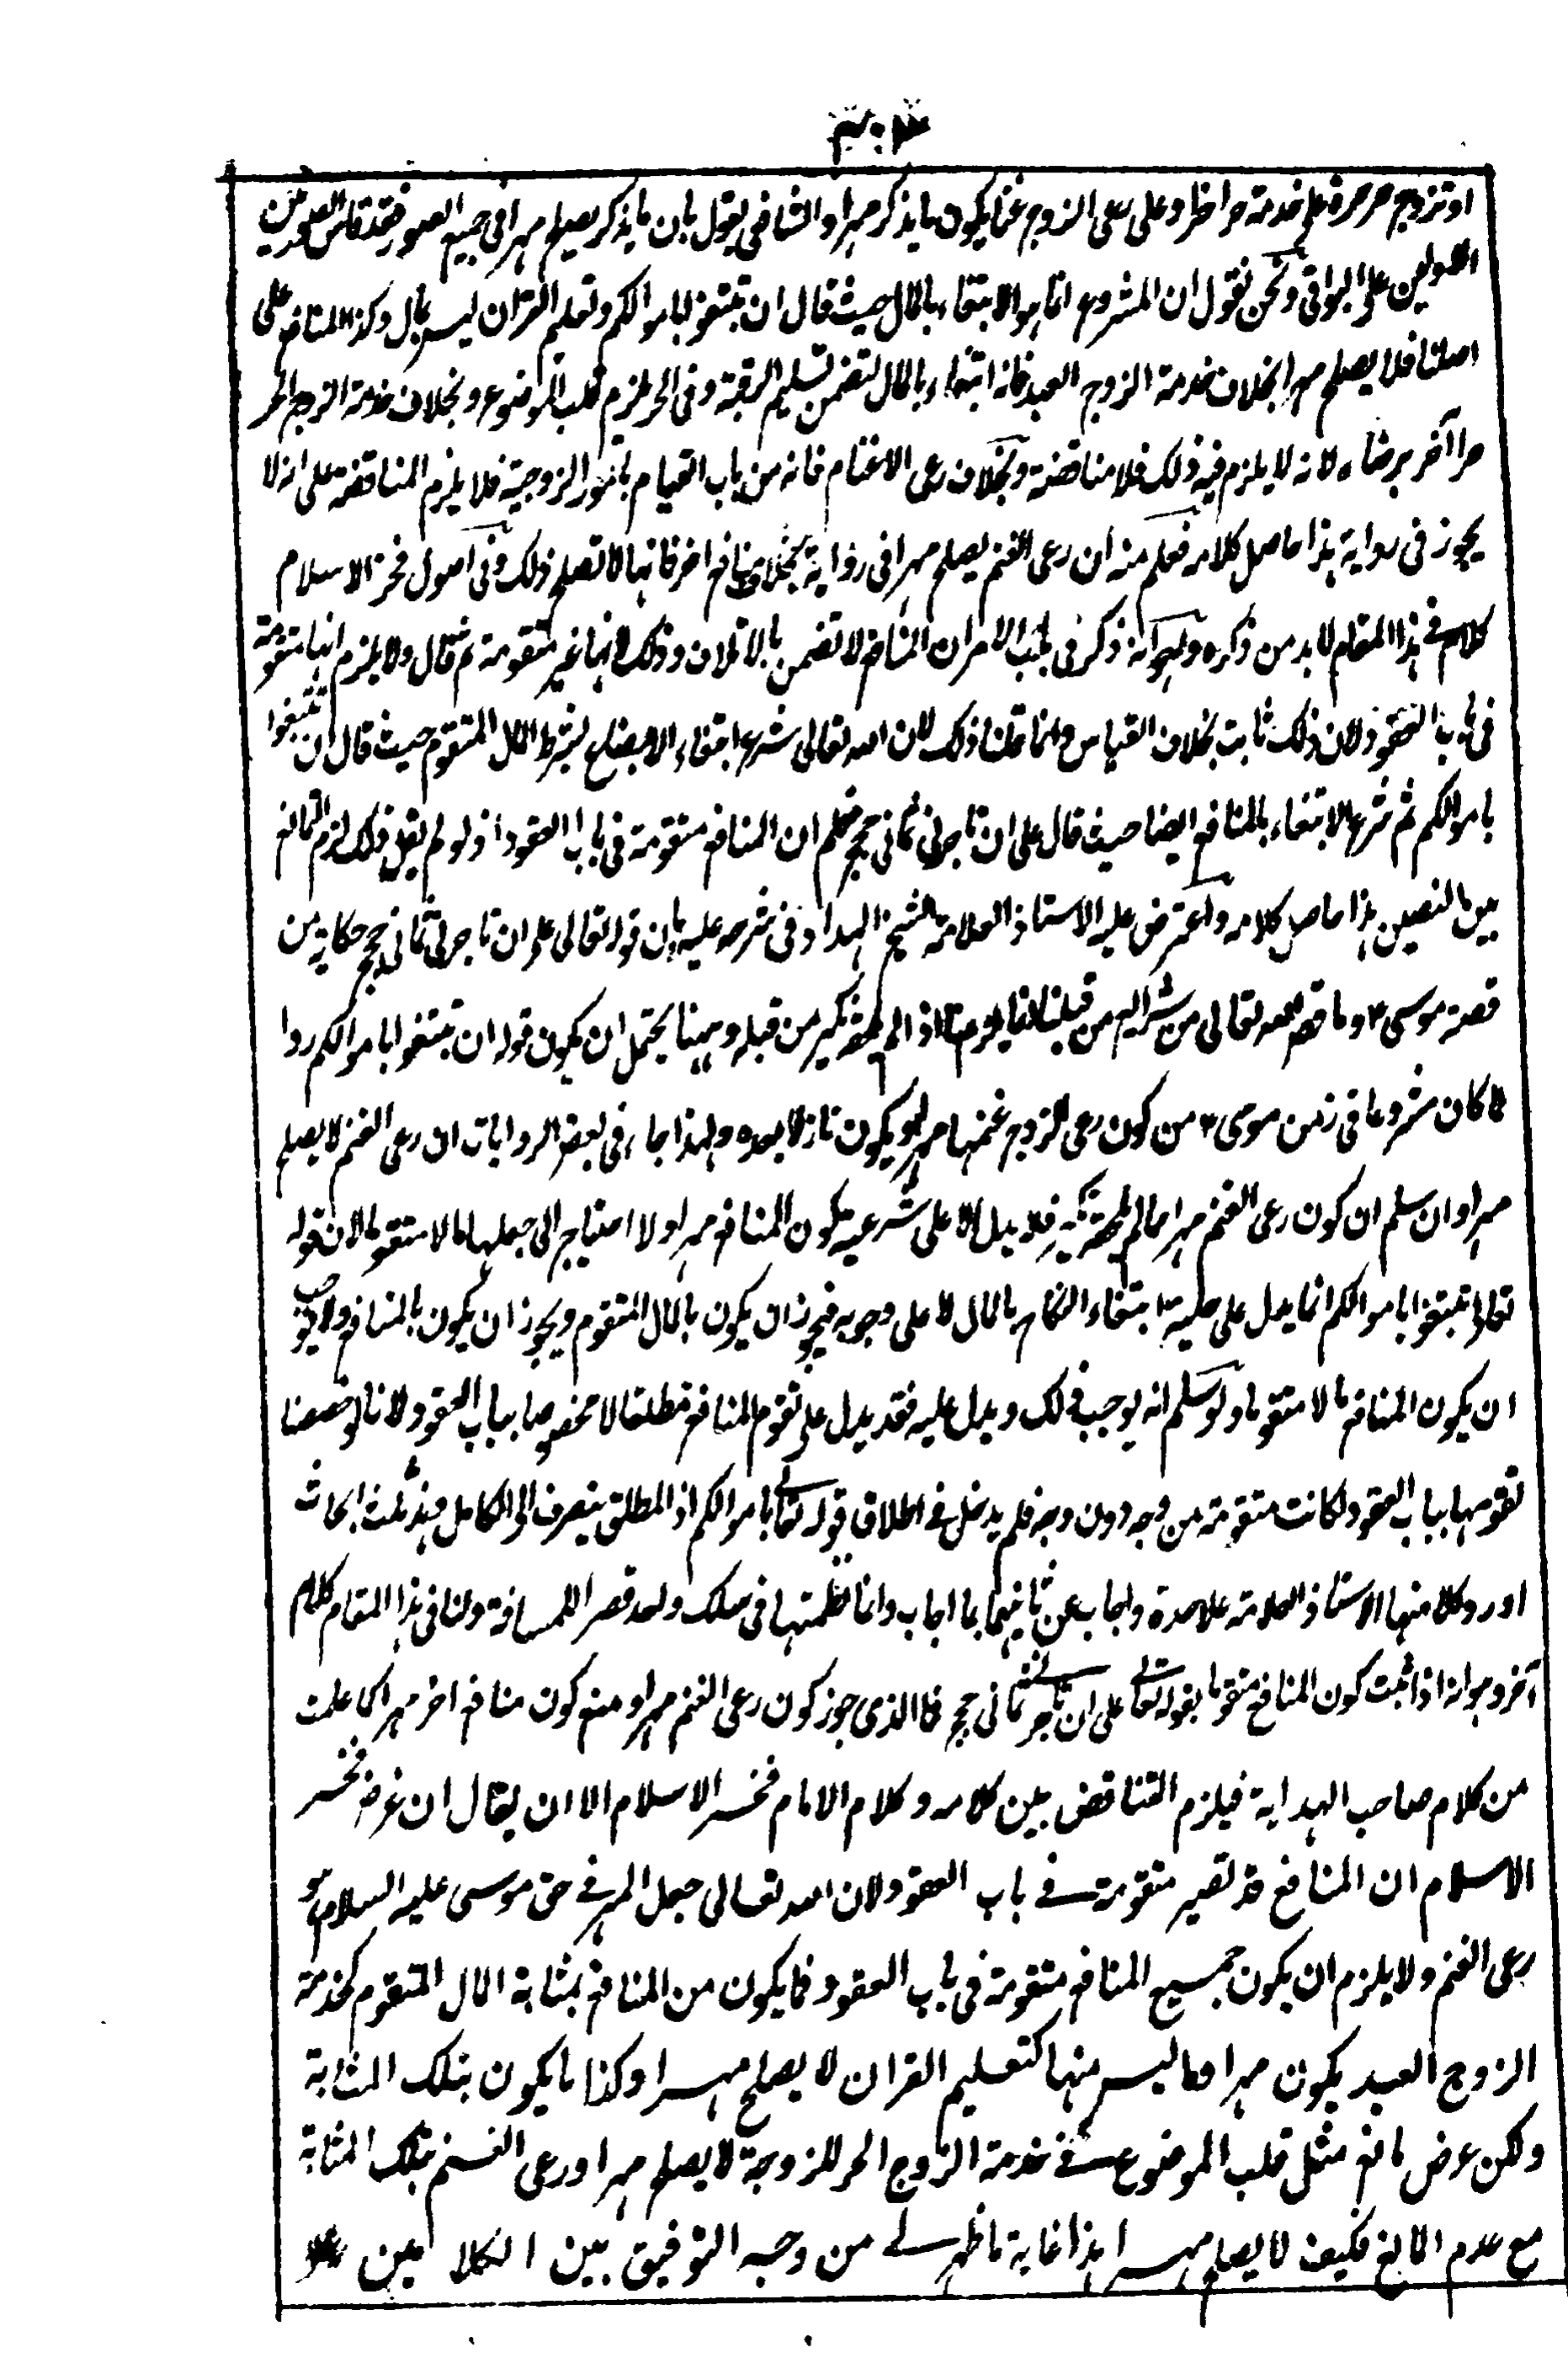 او تزوج حر حرة على خدمة حر آخر او على رعى الزوج غنما يكون ما يذكر مهرا و الشافعى يقول بان ما يذكر يصلح مهرا فى جميع الصور فقد قاس الصورتين
الاوليين على البواقى و نحن نقول ان المشروع انما هو الابتغاء بالمال حيث قال ان تبتغوا باموالكم و تعليم القرآن ليس بمال و كذا المنافع على
اصلنا فلا يصلح مهرا بخلاف خدمة الزوج العبد فانه ابتغاء بالمال لتضمن تسليم الرقبة و فى الحر يلزم قلب الموضوع و بخلاف خدمة الزوج الحر
حرا آخر برضاه لانه لا يلزم فيه ذلك فلا مناقضة و بخلاف رعى الاغنام فانه من باب القيام بامور الزوجية فلا يلزم المناقضة على انه لا
يجوز فى رواية هذا حاصل كلامه فعلم منه ان رعى الغنم يصلح مهرا فى رواية بخلاف منافع اخر فانها لا تصلح ذلك و فى اصول فخر الاسلام
كلام فى هذا المقام لا بد من ذكره و هو انه ذكر فى باب الامر ان المنافع لا تضمن بالاتلاف و ذلك لانها غير متقومة ثم قال و لا يلزم انها متقومة
فى باب العقود لان ذلك ثابت بخلاف القياس و انما قلنا ذلك لان الله تعالى شرع ابتغاء الابضاع بشرط المال المتقوم حيث قال ان تبتغوا
باموالكم ثم شرع الابتغاء بالمنافع ايضا حيث قال على ان تاجرنى ثمانى حجج فعلم ان المنافع متقومة فى باب العقود اذ لو لم يقل ذلك لزم التمانع
بين النصين هذا حاصل كلامه و اعترض عليه الاستاذ العلامة الشيخ الهداد فى شرحه عليه بان قوله تعالى على ان تاجرنى ثمانى حجج حكاية من
قصة موسى ؑ و ما قص الله تعالى من شرائع من قبلنا انما يلزمنا اذا لم يلحقه نكير من قبله و ههنا يحتمل ان يكون قوله ان تبتغوا باموالكم ردا
لما كان مشروعا فى زمن موسى ؑ من كون رعى الزوج غنمها مهرا و يكون نازلا بعده و لهذا جاء فى بعض الروايات ان رعى الغنم لا يصلح
مهرا و ان سلم ان كون رعى الغنم مهرا مما لم يلحقه نكير فلا يدل الا على شرعية كون المنافع مهرا و لا احتياج الى جعلها مالا متقوما لان قوله
تعالى ان تبتغوا باموالكم انما يدل على حلية ابتغاء النكاح بالمال لا على وجوبه فيجوز ان يكون بالمال المتقوم و يجوز ان يكون بالمنافع و لا يوجب
ان يكون المنافع مالا متقوما و لو سلم انه يوجب ذلك و يدل عليه فقد يدل على تقوم المنافع مطلقا لا مخصوصا بباب العقود لانا لو خصصنا
تقومها بباب العقود لكانت متقومة من وجه دون وجه فلم يدخل فى اطلاق قوله تعالى باموالكم اذ المطلق ينصرف الى الكامل فهذه ثلث ابحاث
اورد كلا منها الاستاذ العلامة علاحدة و اجاب عن ثانيهما بما اجاب و انما نظمتها فى سلك واحد قصرا للمسافة و لنا فى هذا المقام كلام
آخر و هو انه اذا ثبت كون المنافع متقوما بقوله تعالى على ان تاجرنى ثمانى حجج فما الذى جوز كون رعى الغنم مهرا و منع كون منافع اخر مهرا كما علمت
من كلام صاحب الهداية فيلزم التناقض بين كلامه و كلام الامام فخر الاسلام الا ان يقال ان غرض فخر
الاسلام ان المنافع قد تصير متقومة فى باب العقود لان الله تعالى جعل المهر فى حق موسى عليه السلام هو
رعى الغنم و لا يلزم ان يكون جميع المنافع متقومة فى باب العقود فما يكون من المنافع بمثابة المال المتقوم كخدمة
الزوج العبد يكون مهرا و ما ليس منها كتعليم القران لا يصلح مهرا و كذا ما يكون بتلك المثابة
و لكن عرض مانع مثل قلب الموضوع فى خدمة الزوج الحر للزوجة لا يصلح مهرا و رعى الغنم بتلك المثابة
مع عدم المانع فكيف لا يصلح مهرا هذا غاية ما ظهر لى من وجه التوفيق بين الكلامين